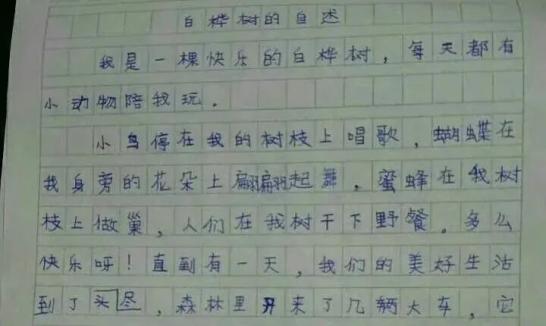 白桦树的自述
我是一棵快乐的白桦树，每天都有
小动物陪我玩。
小鸟停在我的树枝上唱歌，蝴蝶在
我身旁的花朵上翩翩起舞，蜜蜂在我树
枝上做巢，人们在我树干下野餐。多么
快乐呀！直到有一天，我们的美好生活
到了头尽，森林里开来了几辆大车，它